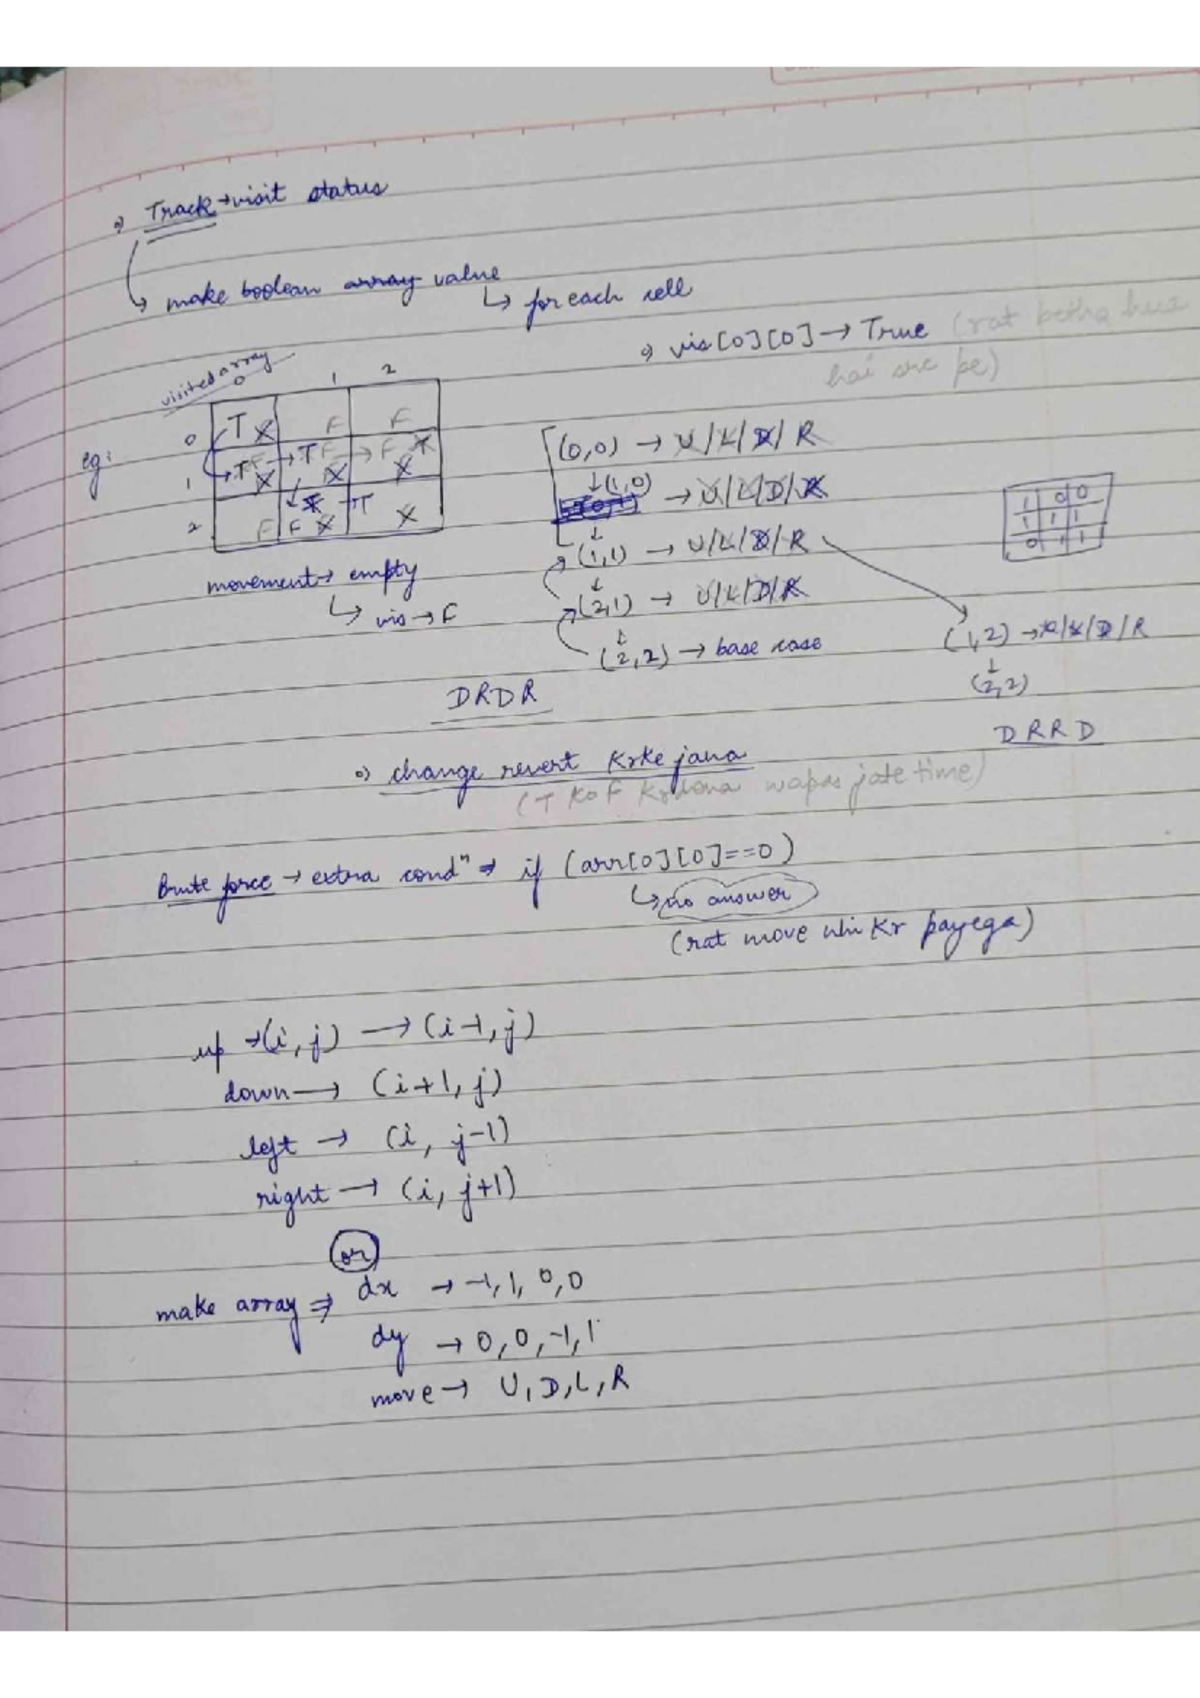 ⇒ Track → visit status
↳ make boolean array value
↳ for each cell
⇒ vis[0][0] → True (rat betha hua
hai src pe)
visited array
0 1 2
eg:
0 T F F
1 T F → T F → F T
2 F F T T
(0,0) → U/L/D/R
↓(1,0) → U/L/D/R
↓
(1,1) → U/L/D/R
↓
(2,1) → U/L/D/R
↓
(2,2) → base case
1 0 0
1 1 1
0 1 1
(1,2) → U/L/D/R
↓
(2,2)
movement → empty
↳ vis → F
DRDR
DRRD
⇒ change revert krke jana
(T ko F krdena wapas jate time)
Brute force → extra condⁿ ⇒ if (arr[0][0]==0)
↳ no answer
(rat move nhi kr payega)
up → (i, j) → (i-1, j)
down → (i+1, j)
left → (i, j-1)
right → (i, j+1)
or
make array ⇒ dx → -1, 1, 0, 0
dy → 0, 0, -1, 1
move → U, D, L, R